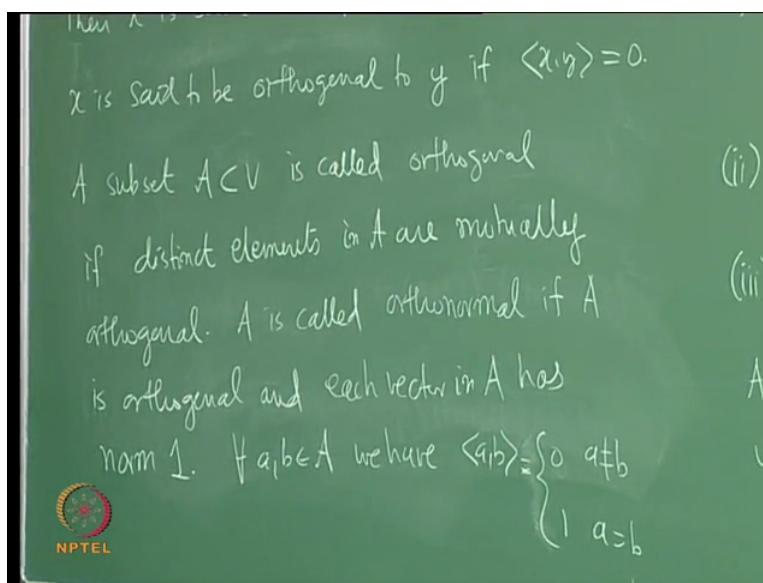 Then x is
x is said to be orthogonal to y if ⟨x,y⟩ = 0.
A subset A ⊂ V is called orthogonal
if distinct elements in A are mutually
orthogonal. A is called orthonormal if A
is orthogonal and each vector in A has
norm 1. ∀ a,b ∈ A we have ⟨a,b⟩ = { 0 a ≠ b
1 a = b
(ii)
(iii
A
NPTEL